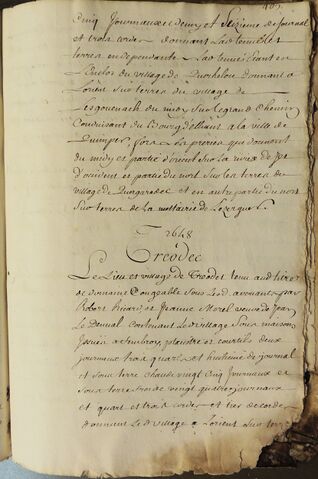 cinq Journaux et demy et seizieme de Journal
et trois cordes donnant Lad. tenue et
terres en dependantes
Enclos du village de donnant a
Lorient sur terres du village de
Lesgouenach du midy sur le grand Chemin
Conduisant du Bourg d'Elliant a la ville de
Quimper qui donnent
du midy et partie d'orient sur La riviere de Jet
d'occident et partie du nort sur les terres du
village de et en autre partie du nort
sur terres de La mettairie de Lezergué
2648
Treodec
Le Lieu et village de Treodet tenu aud. titre
de domaine Congeable sous Led. avouant par
Robert et Jeanne Morel veuve de Jean
Le Deuval Contenant Led. village sous maisons
Issues et courtils deux
journaux trois quarts et huitieme de journal
et sous terre chaude vingt cinq Journaux et
sous terre froide vingt quatre journaux
et quart et trois cordes et tier de corde
donnant Led. village a Lorient sur terre